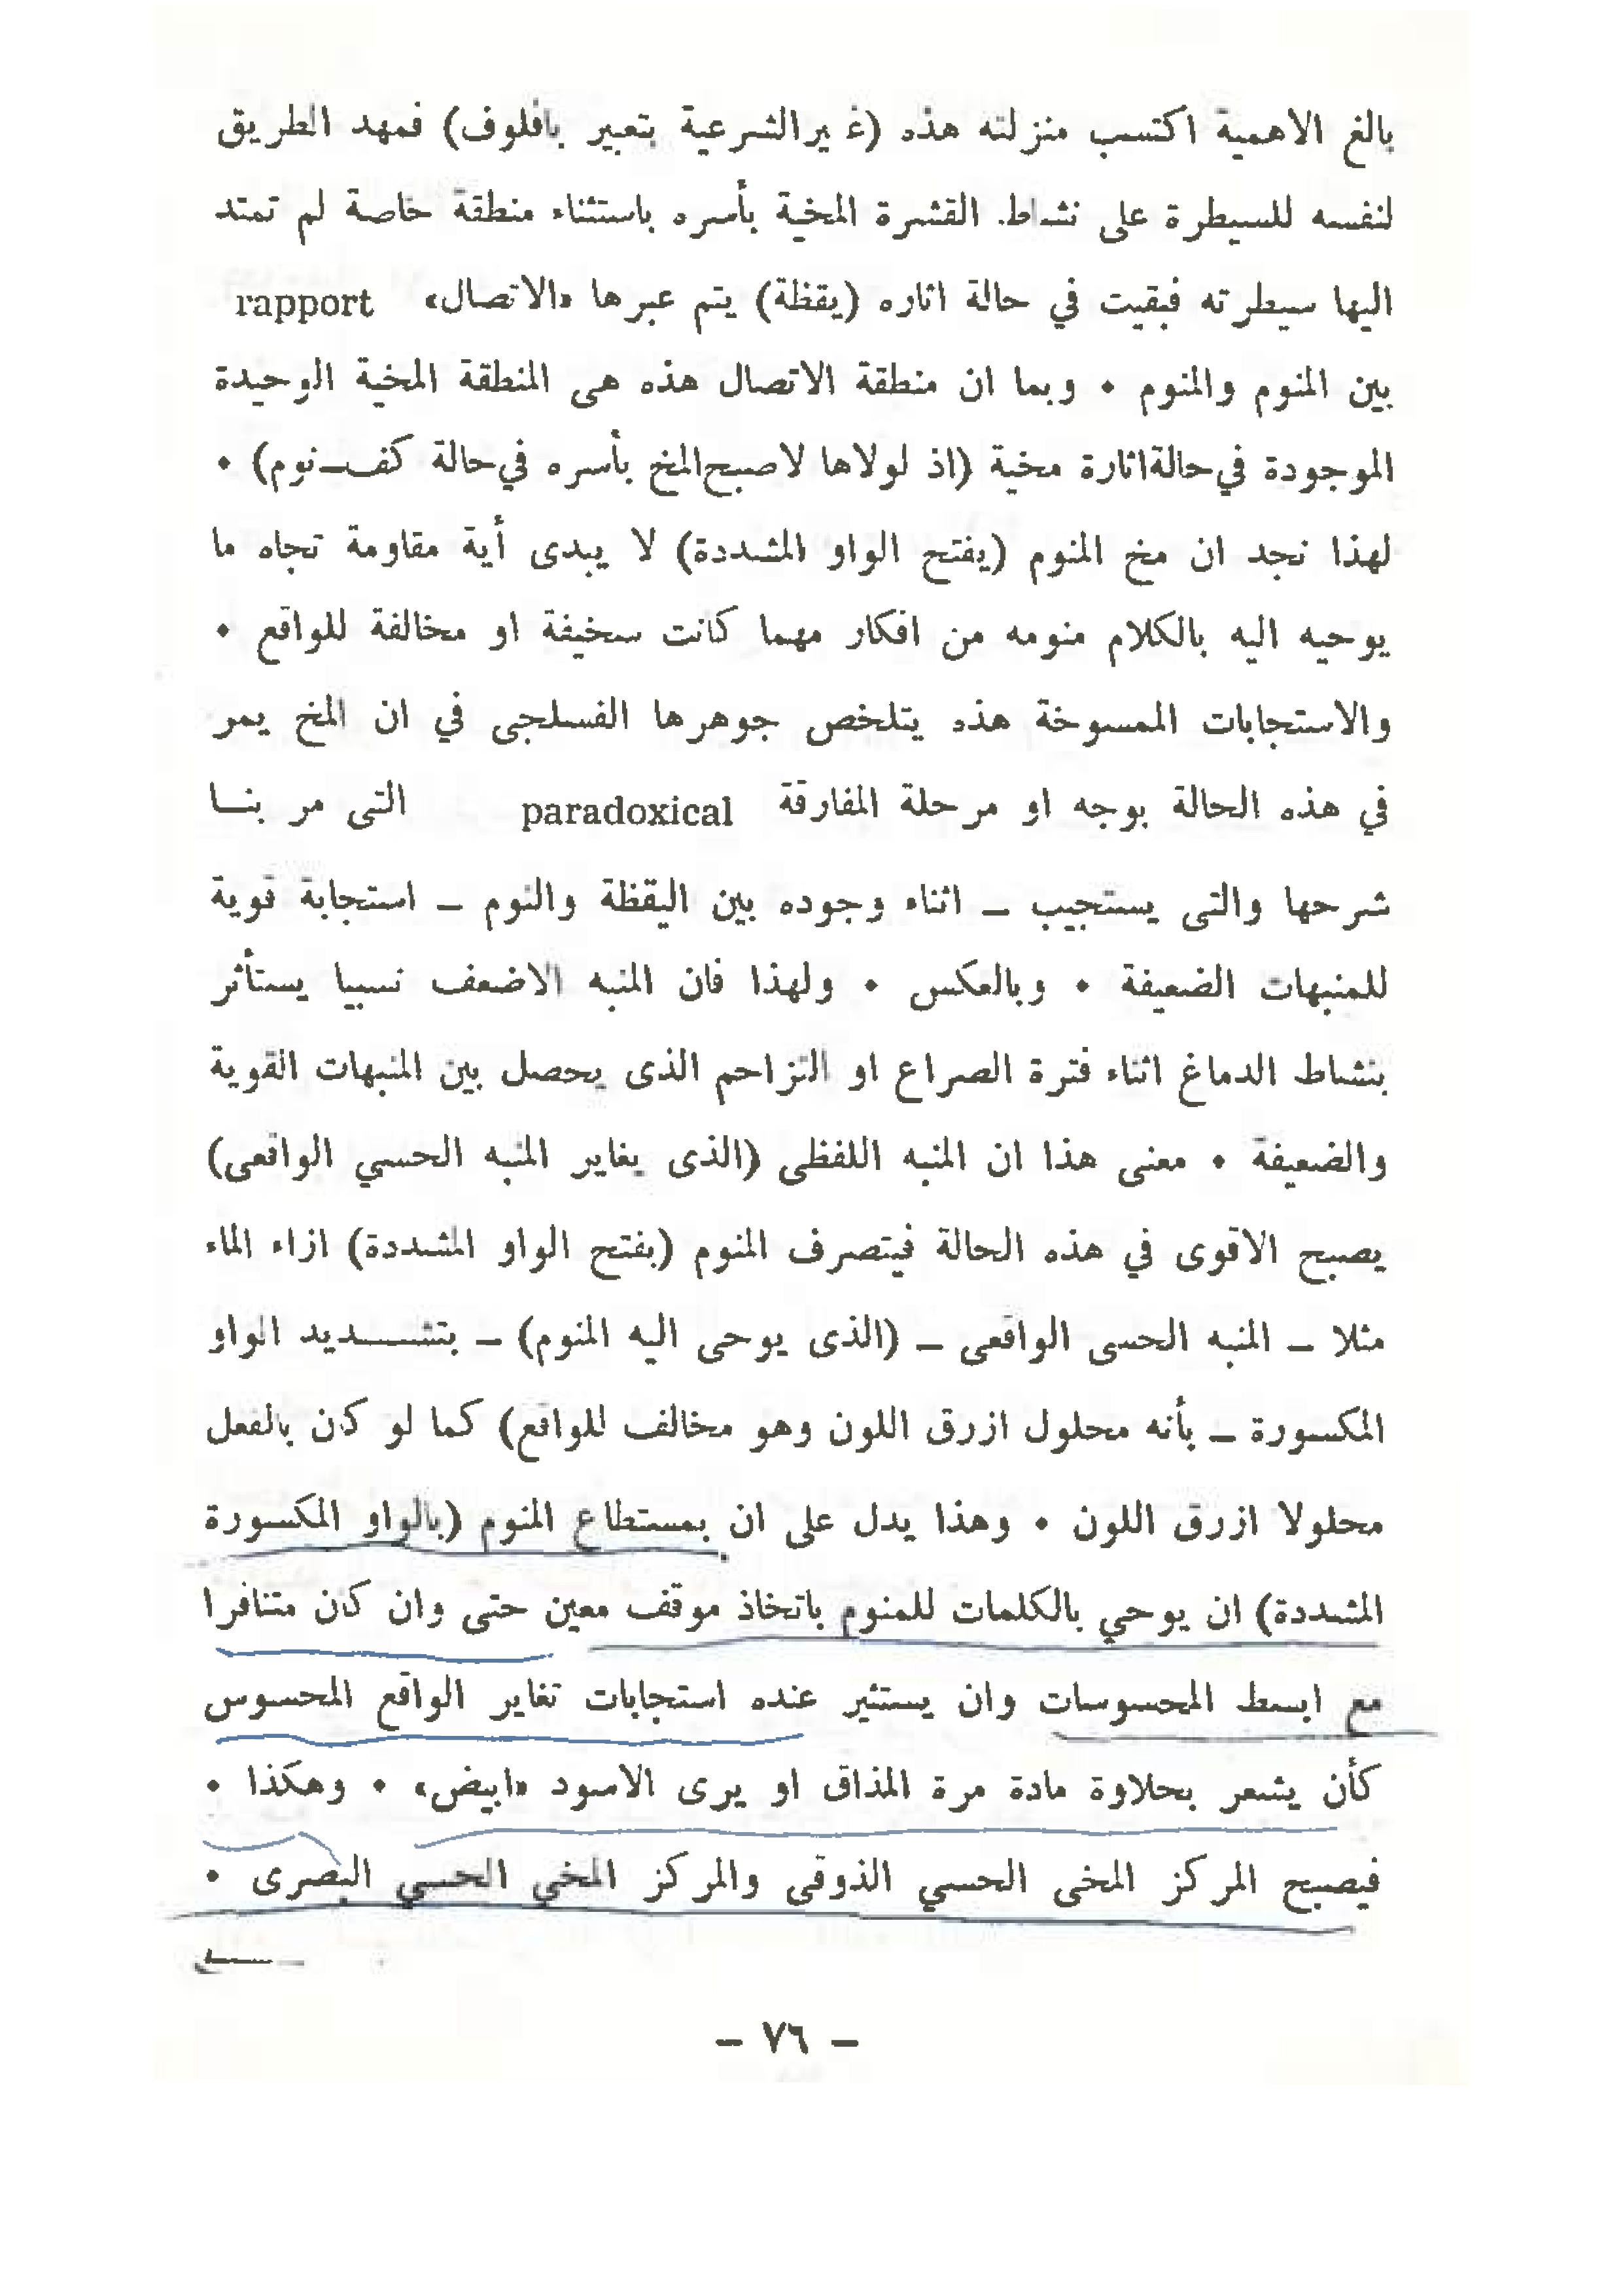 بالغ الاهمية اكتسب منزلته هذه (غ يرالشرعية بتعبير بافلوف) فمهد الطريق
لنفسه للسيطرة على نشاط. القشرة المخية بأسره باستثناء منطقة خاصة لم تمتد
اليها سيطرته فبقيت في حالة اثاره (يقظة) يتم عبرها «الاتصال» rapport
بين المنوم والمنوم • وبما ان منطقة الاتصال هذه هى المنطقة المخية الوحيدة
الموجودة في حالة اثارة مخية (اذ لولاها لاصبح المخ بأسره في حالة كف–نوم) •
لهذا نجد ان مخ المنوم (يفتح الواو المشددة) لا يبدى أية مقاومة تجاه ما
يوحيه اليه بالكلام منومه من افكار مهما كانت سخيفة او مخالفة للواقع •
والاستجابات الممسوخة هذه يتلخص جوهرها الفسلجى في ان المخ يمر
في هذه الحالة بوجه او مرحلة المفارقة paradoxical التى مر بنــا
شرحها والتى يستجيب – اثناء وجوده بين اليقظة والنوم – استجابة قوية
للمنبهات الضعيفة • وبالعكس • ولهذا فان المنبه الاضعف نسبيا يستأثر
بنشاط الدماغ اثناء فترة الصراع او التزاحم الذى يحصل بين المنبهات القوية
والضعيفة • معنى هذا ان المنبه اللفظى (الذى يغاير المنبه الحسي الواقعى)
يصبح الاقوى في هذه الحالة فيتصرف المنوم (بفتح الواو المشددة) ازاء الماء
مثلا – المنبه الحسى الواقعى – (الذى يوحى اليه المنوم) – بتشـــديد الواو
المكسورة – بأنه محلول ازرق اللون وهو مخالف للواقع) كما لو كان بالفعل
محلولا ازرق اللون • وهذا يدل على ان بمستطاع المنوم (بالواو المكسورة
المشددة) ان يوحي بالكلمات للمنوم باتخاذ موقف معين حتى وان كان متنافرا
مع ابسط المحسوسات وان يستثير عنده استجابات تغاير الواقع المحسوس
كأن يشعر بحلاوة مادة مرة المذاق او يرى الاسود «ابيض» • وهكذا •
فيصبح المركز المخى الحسي الذوقى والمركز المخي الحسي البصرى •
– ٧٦ –